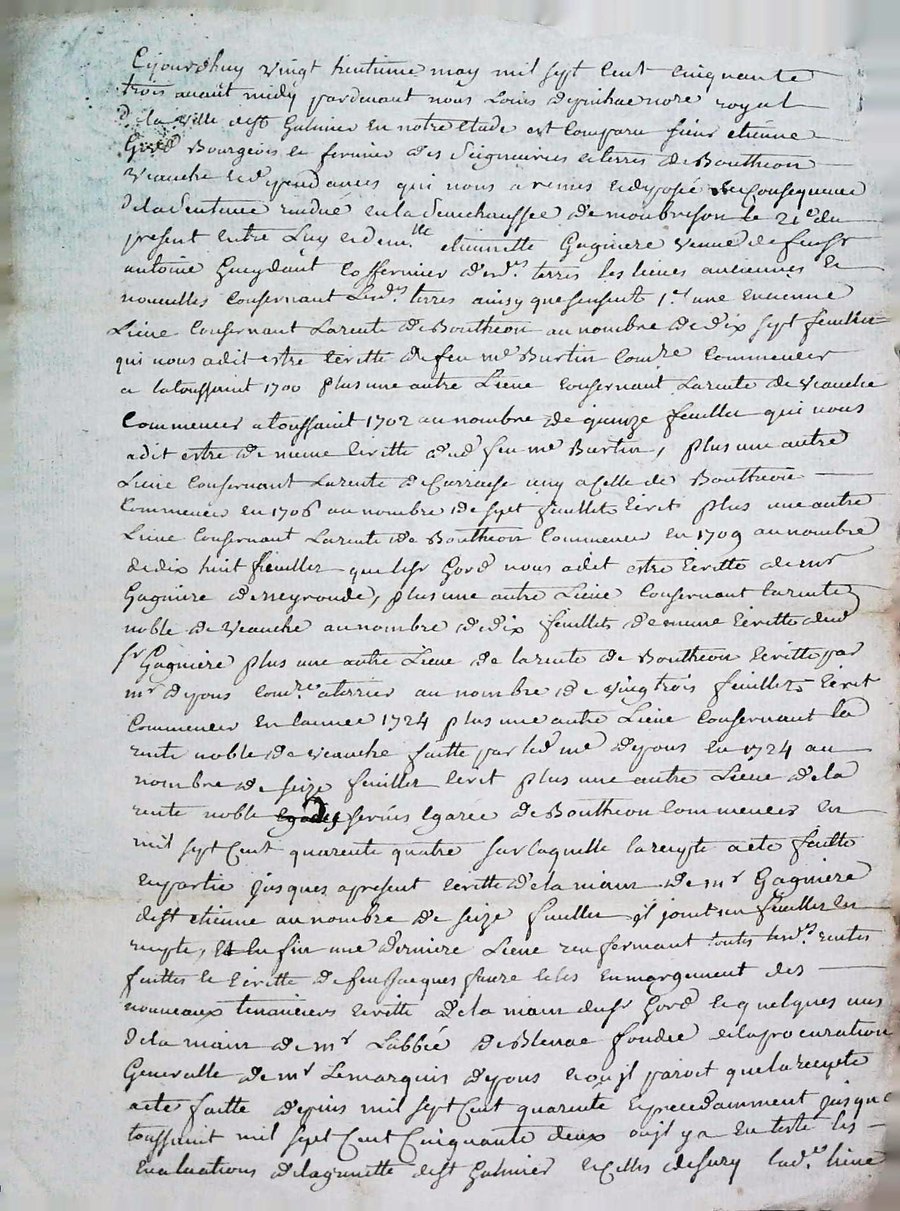 Cejourdhuy vingt huitieme may mil sept cent cinquante
trois avant midy pardevant nous Louis notre royal
de la ville de st Galmier en notre etude est comparu sieur etienne
Bourgeois et fermier des seigneuries et terres de Boutheon
Veauche et dependances qui nous a remis et deposé en Consequence
de la sentence rendue en la senechaussée de monbrison le 21e du
present entre Luy et dem.lle etiennette Gagniere veuve de feu sr
antoine cofermier desd.s terres les lieves anciennes et
nouvelles Consernant lesd.s terres ainsy que sensuit 1.t une encienne
Lieve Consernant Larente de Boutheon au nombre de dix sept feuillets
qui nous a dit estre Ecritte de feu me Burtin com.re Commencer
a latoussaint 1700 plus une autre Lieve consernant Larente de veauche
Commencer a toussaint 1702 au nombre de quinze feuillets qui nous
a dit estre de meme Ecritte dud feu me Burtin, plus une autre
Lieve Consernant Larente de uny a Celle de Boutheon
Commencer en 1706 au nombre de sept feuillets Ecrit plus une autre
Lieve Consernant Larente de Boutheon Commencer en 1709 au nombre
de dix huit feuillets que led sr nous a dit estre Ecritte de mr
Gagniere de meyronde, plus une autre Lieve Consernant larente
noble de Veauche au nombre de dix feuillets de meme Ecritte dud
sr Gagniere plus une autre Lieve de larente de Boutheon Ecritte par
mr depons com.re a terrier au nombre de vingtrois feuillets Ecrit
Commencer en lannée 1724 plus une autre Lieve Consernant la
rente noble de veauche faitte par led me depons en 1724 au
nombre de seize feuillets Ecrit plus une autre Lieve de la
rente noble servis Egarée de Boutheon Commencer en
mil sept Cent quarente quatre sur laquelle larecepte a ete faitte
en partie jusques apresent Ecritte de la main de mr Gagniere
de st etienne au nombre de seize feuillets y joint un feuillet en
recepte, Et En fin une derniere Lieve renfermant toutes lesd.s rentes
faittes et Ecritte de feu Jacques faure et les enmargement des
nouveaux tenanciers Ecritte de la main dud sr et quelques uns
de la main de mr Labbé de Blenac fondée de la procuration
Generalle de mr Lemarquis depons et ou jl paroit que la recepte
a ete faitte depuis mil sept Cent quarente Et precedamment jusque
toussaint mil sept Cent Cinquante deux ou jl y a En teste les
Evaluations de la grenette de st Galmier et Celles de sury lad.e lieve